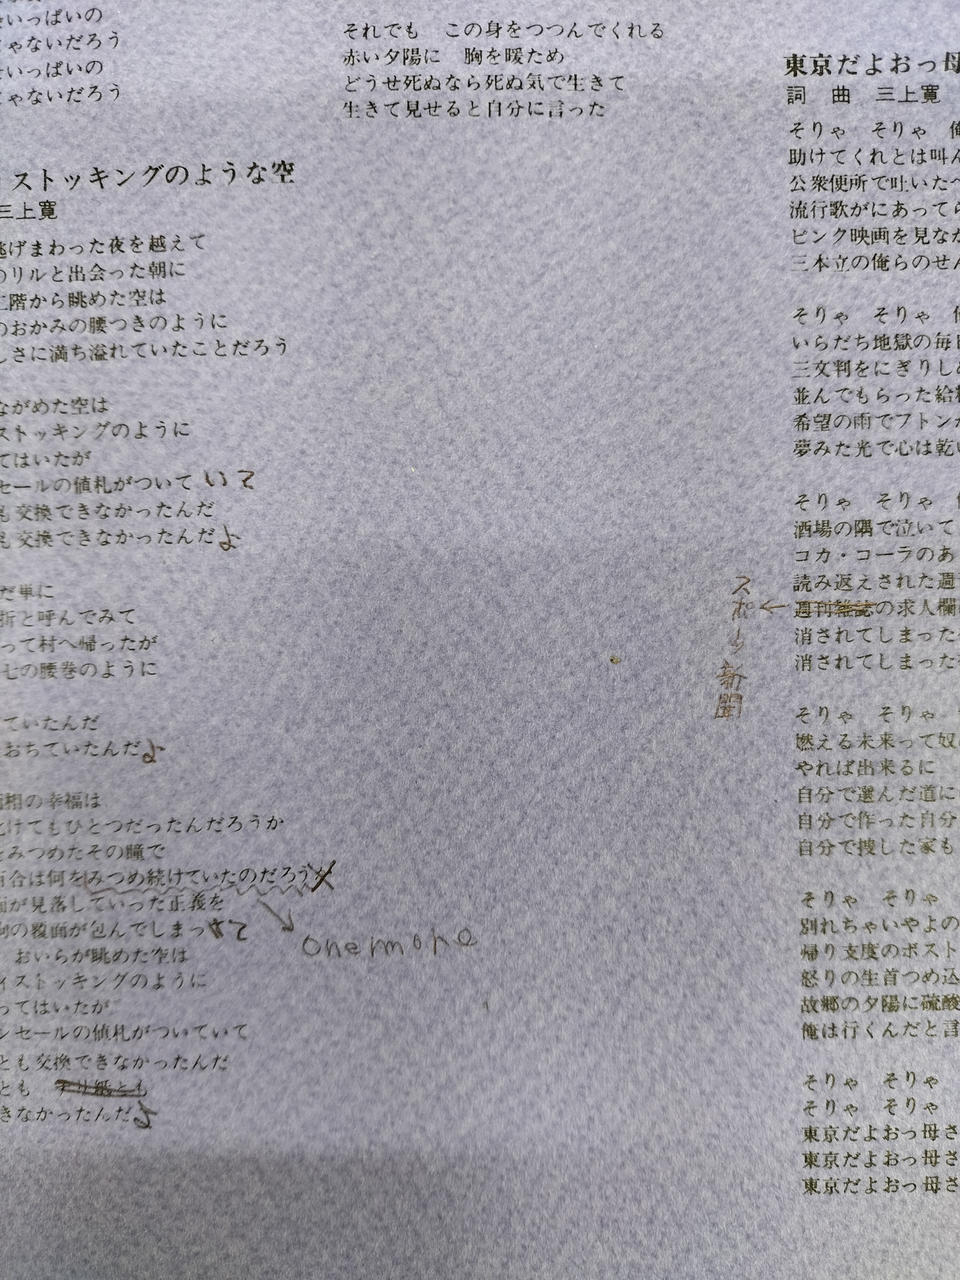 をいっぱいの
じゃないだろう
をいっぱいの
じゃないだろう
ストッキングのような空
三上寛
逃げまわった夜を越えて
のリルと出会った朝に
二階から眺めた空は
のおかみの腰つきのように
しさに満ち溢れていたことだろう
ながめた空は
ストッキングのように
てはいたが
セールの値札がついて いて
も交換できなかったんだ
も交換できなかったんだよ
だ単に
折と呼んでみて
って村へ帰ったが
七の腰巻のように
ていたんだ
おちていたんだよ
相の幸福は
化けてもひとつだったんだろうか
をみつめたその瞳で
百合は何をみつめ続けていたのだろうか
面が見落していった正義を
の覆面が包んでしまって
おいらが眺めた空は
ィストッキングのように
ってはいたが
ンセールの値札がついていて
とも交換できなかったんだ
とも チリ紙とも
きなかったんだよ
onemore
それでも この身をつつんでくれる
赤い夕陽に 胸を暖ため
どうせ死ぬなら死ぬ気で生きて
生きて見せると自分に言った
東京だよおっ母
詞 曲 三上寛
そりゃ そりゃ 俺
助けてくれとは叫ん
公衆便所で吐いた
流行歌がにあってら
ピンク映画を見なが
三本立の俺らのせん
そりゃ そりゃ 俺
いらだち地獄の毎日
三文判をにぎりしめ
並んでもらった給料
希望の雨でフトンが
夢みた光で心は乾い
そりゃ そりゃ
酒場の隅で泣いて
コカ・コーラのあ
読み返えされた週
週刊雑誌の求人欄
スポーツ新聞
消されてしまった
消されてしまった
そりゃ そりゃ
燃える未来って奴
やれば出来るに
自分で選んだ道に
自分で作った自分
自分で捜した家も
そりゃ そりゃ
別れちゃいやよの
帰り支度のボスト
怒りの生首つめ込
故郷の夕陽に硫酸
俺は行くんだと言
そりゃ そりゃ
そりゃ そりゃ
東京だよおっ母さ
東京だよおっ母さ
東京だよおっ母さ